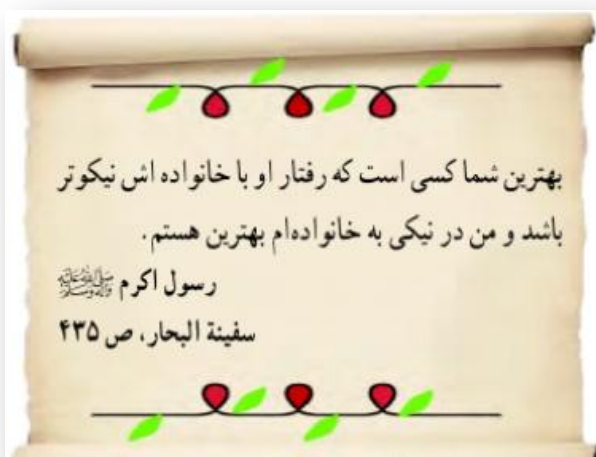 بهترین شما کسی است که رفتار او با خانواده اش نیکوتر
باشد و من در نیکی به خانواده‌ام بهترین هستم.
رسول اکرم صلی الله علیه وآله وسلم
سفینة البحار، ص ۴۳۵